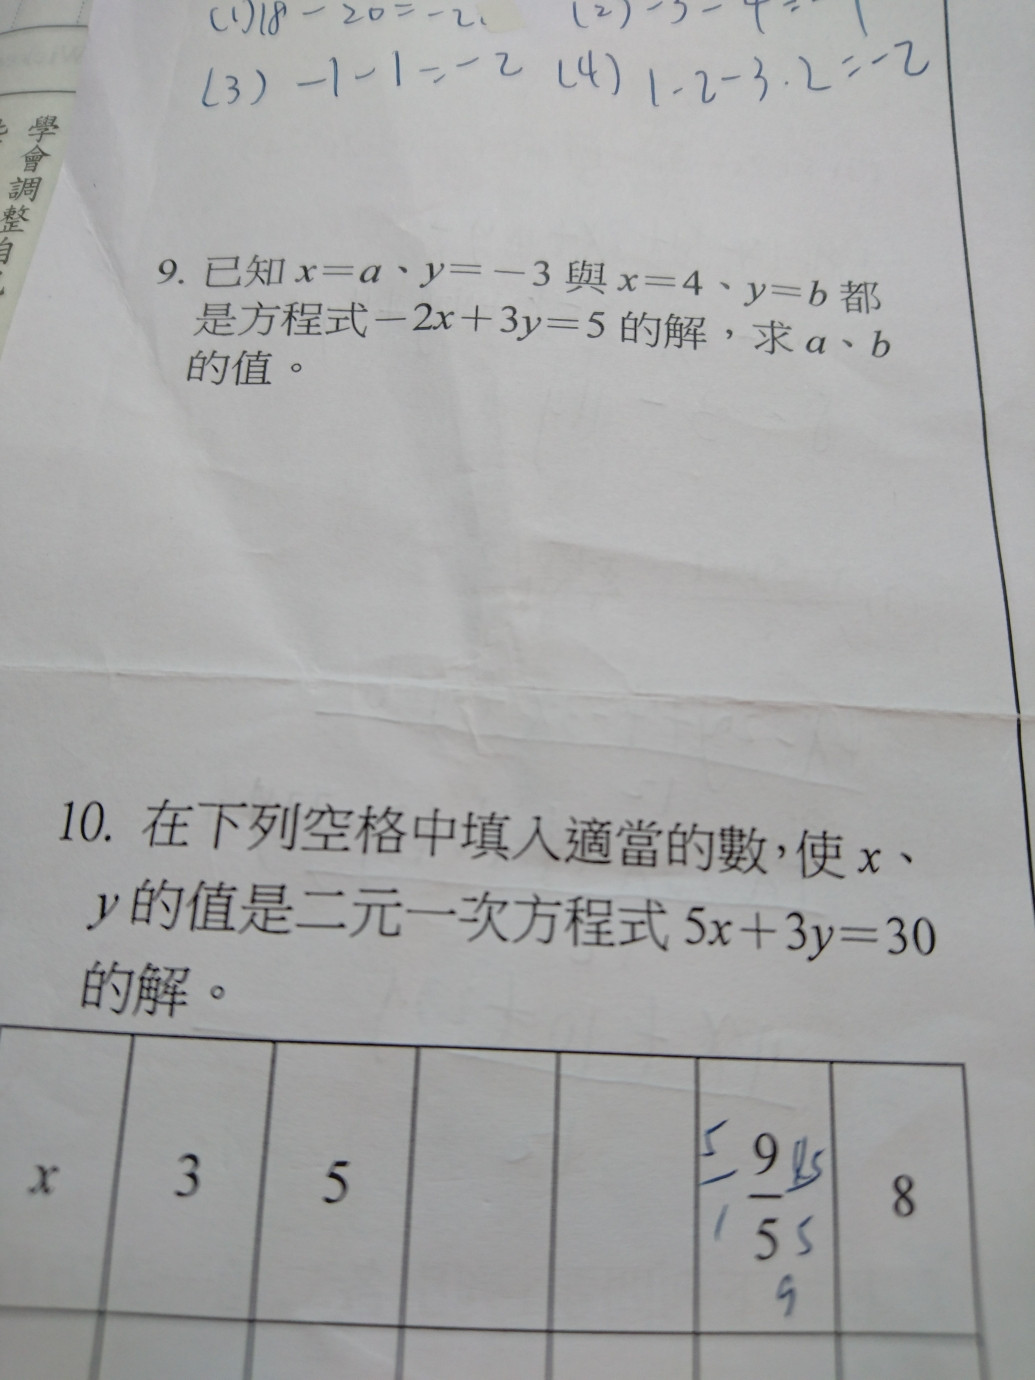 (1)18-20=-2.
(3) -1-1=-2 (4) 1-2-3.2=-2
學會調整自己
9. 已知 x=a、y=-3 與 x=4、y=b 都
是方程式-2x+3y=5 的解，求 a、b
的值。
10. 在下列空格中填入適當的數，使 x、
y 的值是二元一次方程式 5x+3y=30
的解。
x 3 5 9/5 8
5/1
5
9